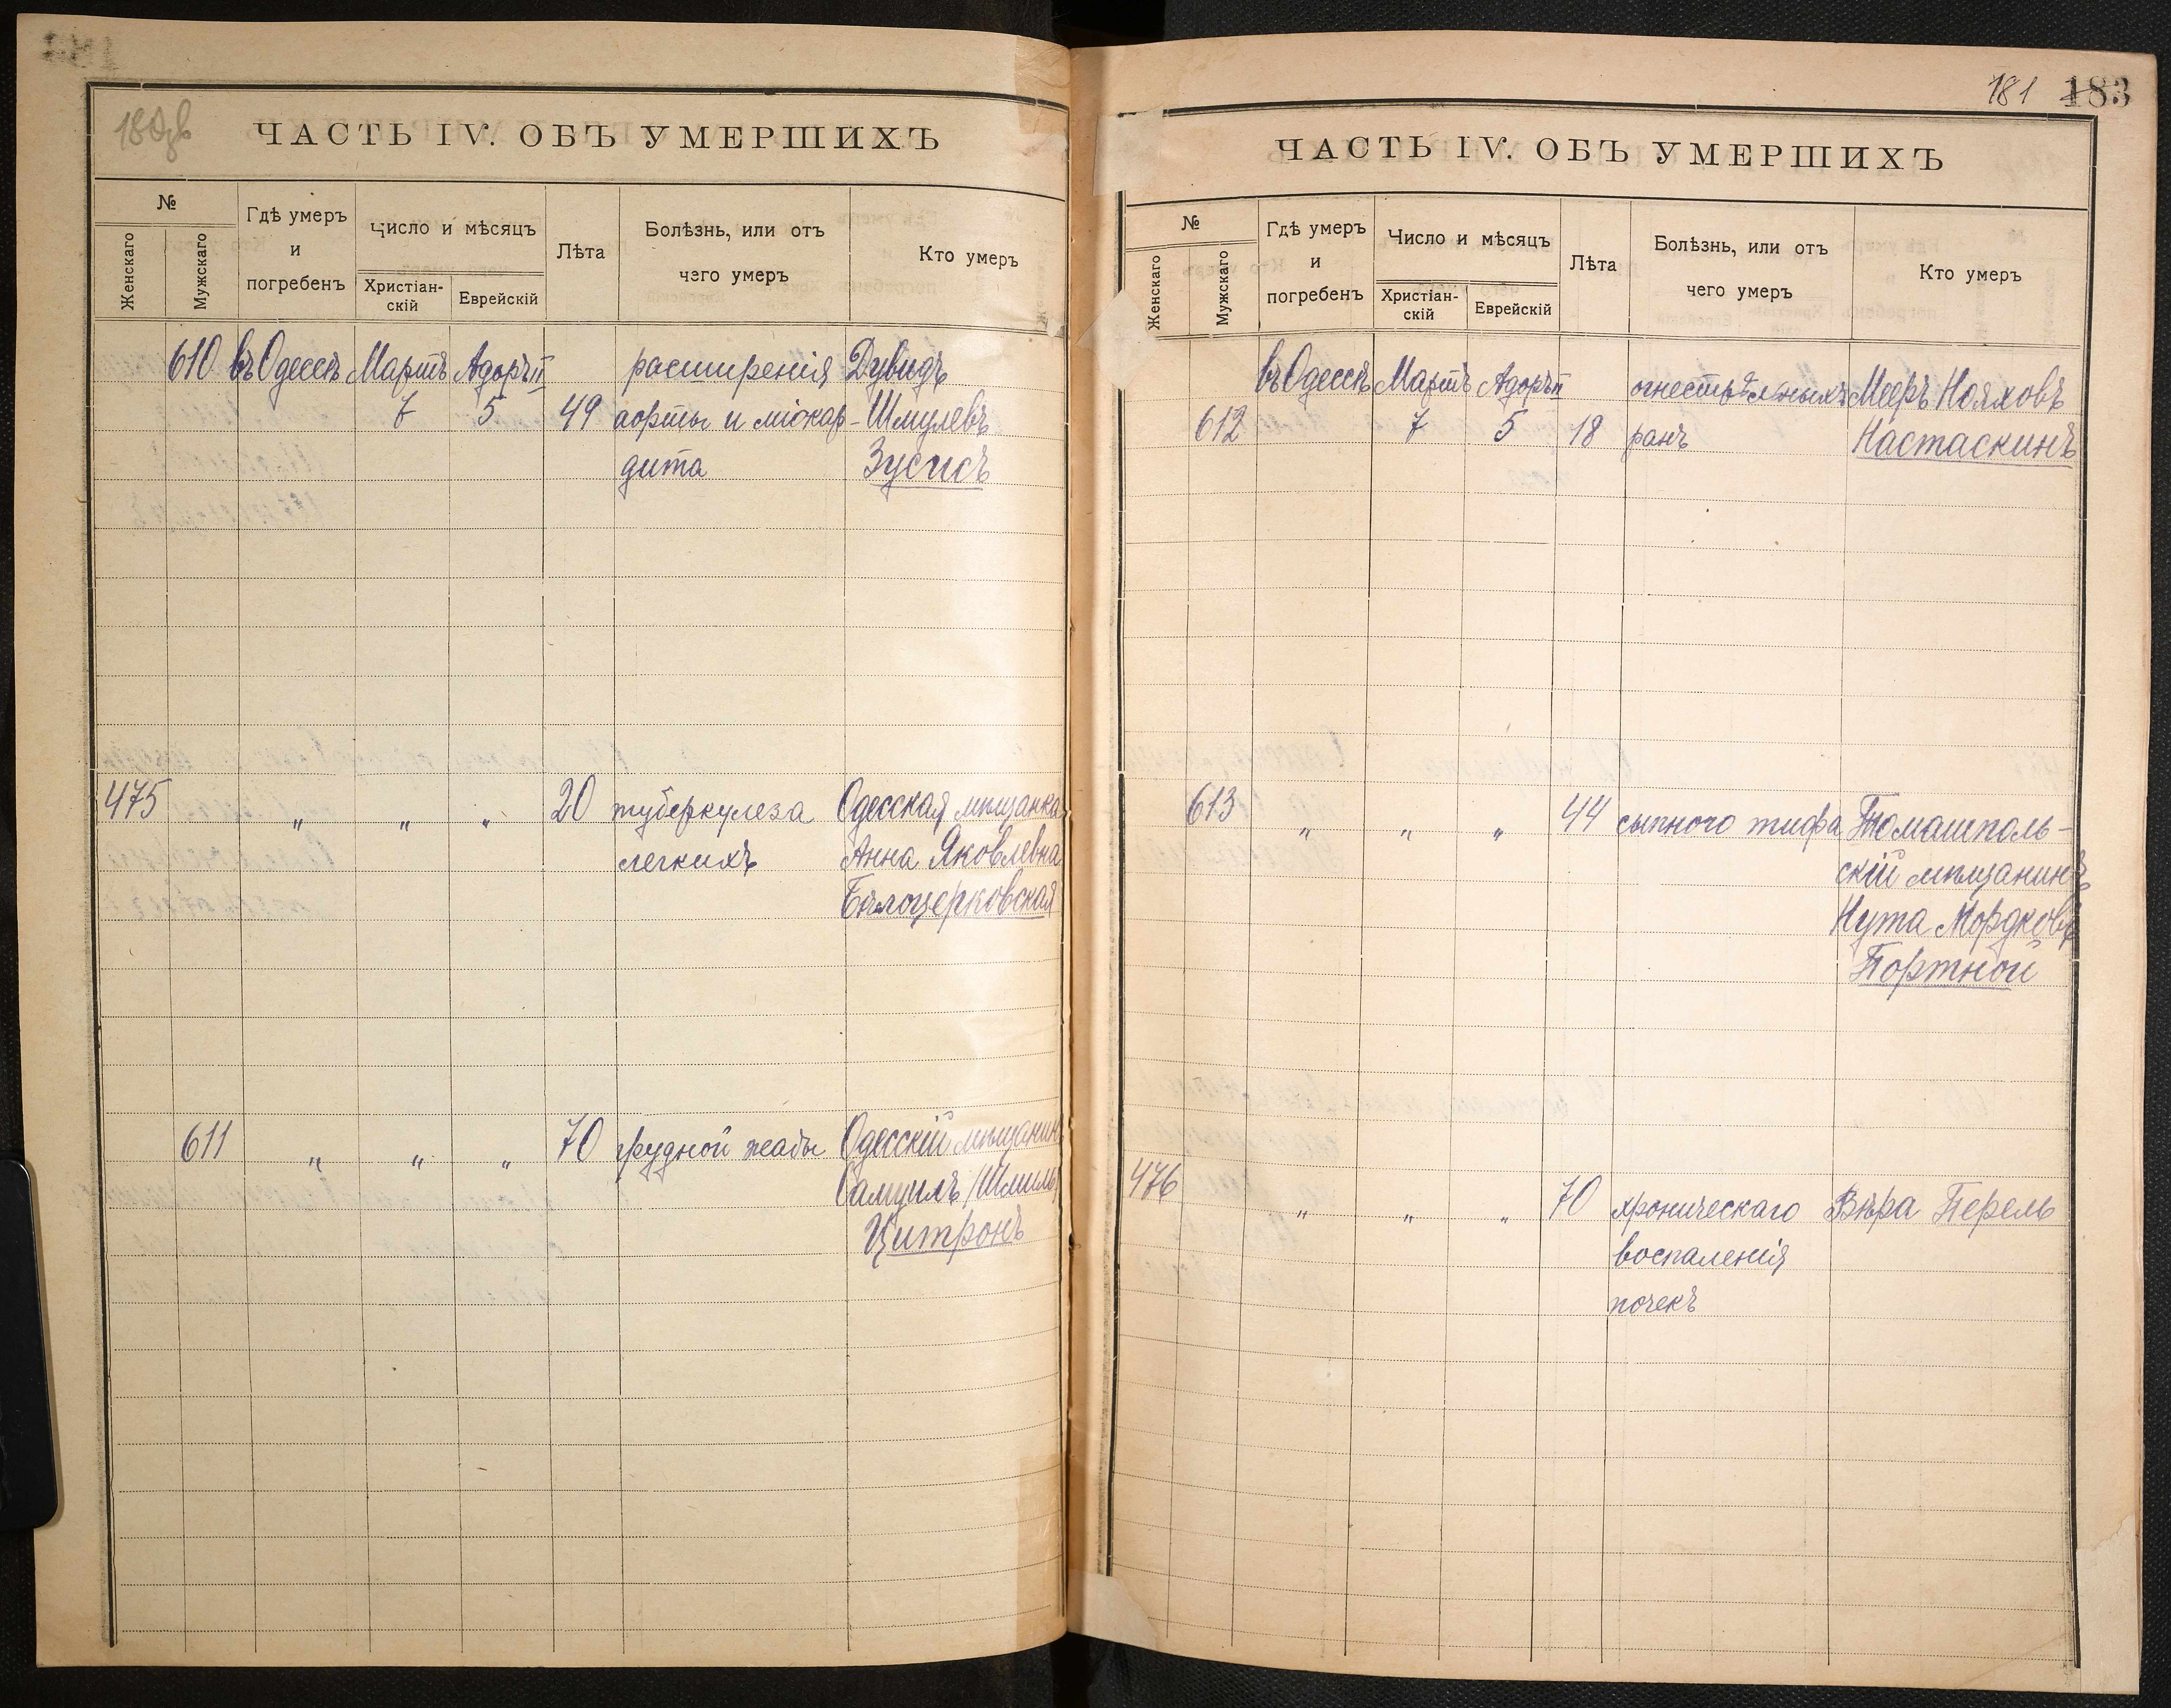 180об
ЧАСТЬ IV. ОБЪ УМЕРШИХЪ
№
Женскаго
Мужскаго
Гдѣ умеръ
и
погребенъ
Число и мѣсяцъ
Христіан-
скій
Еврейскій
Лѣта
Болѣзнь, или отъ
чего умеръ
Кто умеръ
610 въ Одессѣ Мартъ Адоръ II расширенія Дувидъ
7 5 49 аорты и міокар- Шмулевъ
дита Зусисъ
475 " " " 20 туберкулеза Одесская мѣщанка
легкихъ Анна Яковлевна
Бѣлоцерковская
611 " " " 70 грудной жабы Одесскій мѣщанин
Самуилъ /Шмиль/
Цитронъ
181 183
ЧАСТЬ IV. ОБЪ УМЕРШИХЪ
№
Женскаго
Мужскаго
Гдѣ умеръ
и
погребенъ
Число и мѣсяцъ
Христіан-
скій
Еврейскій
Лѣта
Болѣзнь, или отъ
чего умеръ
Кто умеръ
въ Одессѣ Мартъ Адоръ II огнестрѣльныхъ Мееръ Нояховъ
612 7 5 18 ранъ Настаскинъ
613 " " " 44 сыпного тифа Томашполь-
скій мѣщанинъ
Нута Мордковъ
Портной
476 " " " 70 хроническаго Вѣра Перель
воспаленія
почекъ